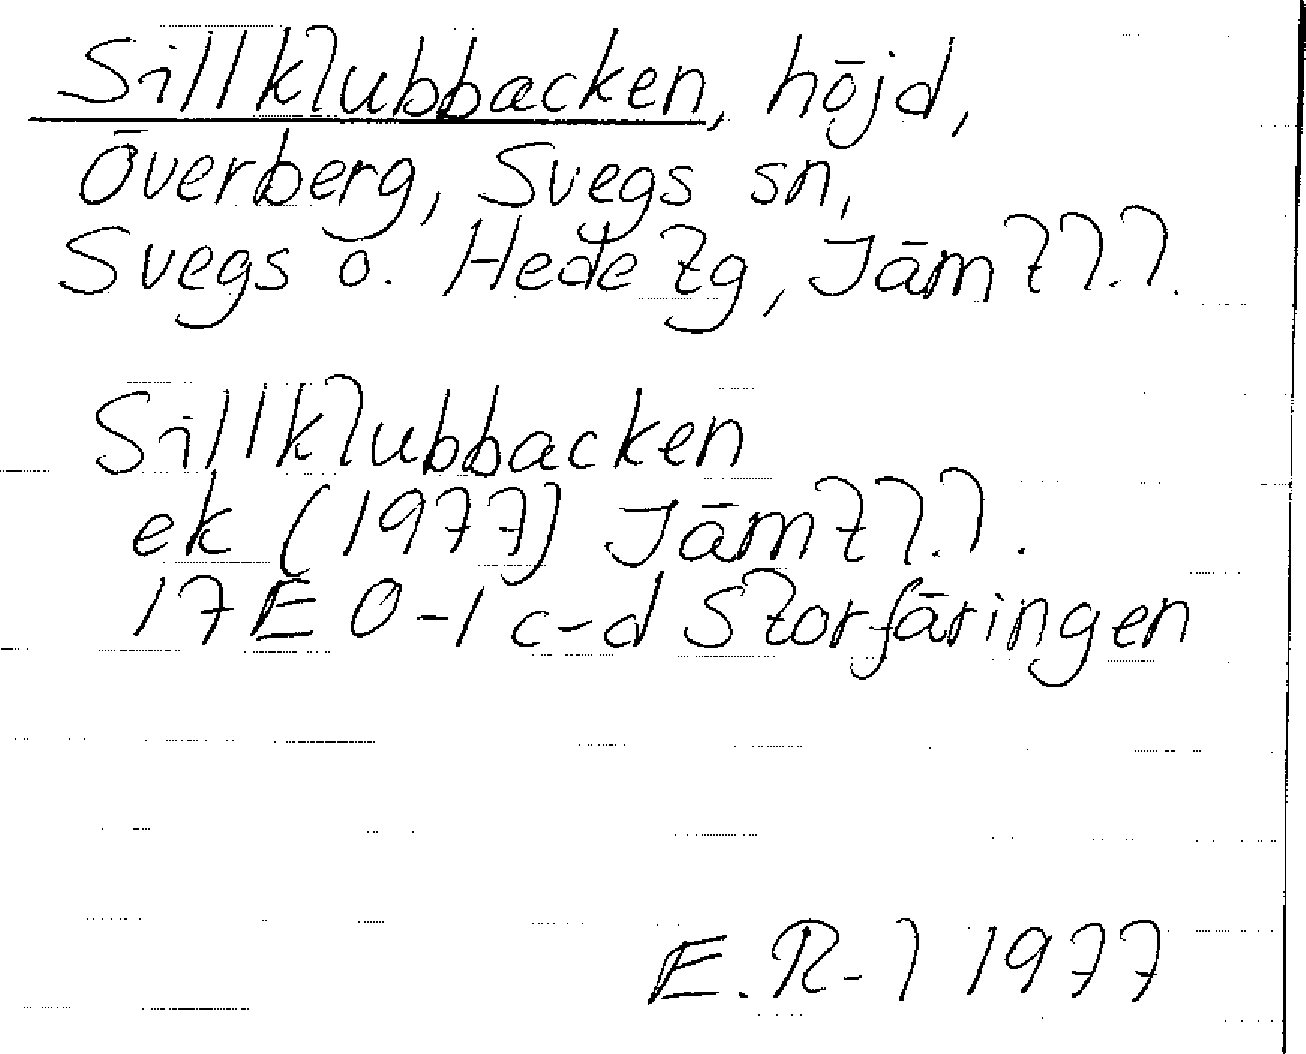 Sillklubbacken, höjd,
Överberg, Svegs sn,
Svegs o. Hede tg, Jämtl.l.
Sillklubbacken
ek (1977) Jämtl.l.
17E 0-1 c-d Storfäringen
E.R-l 1977